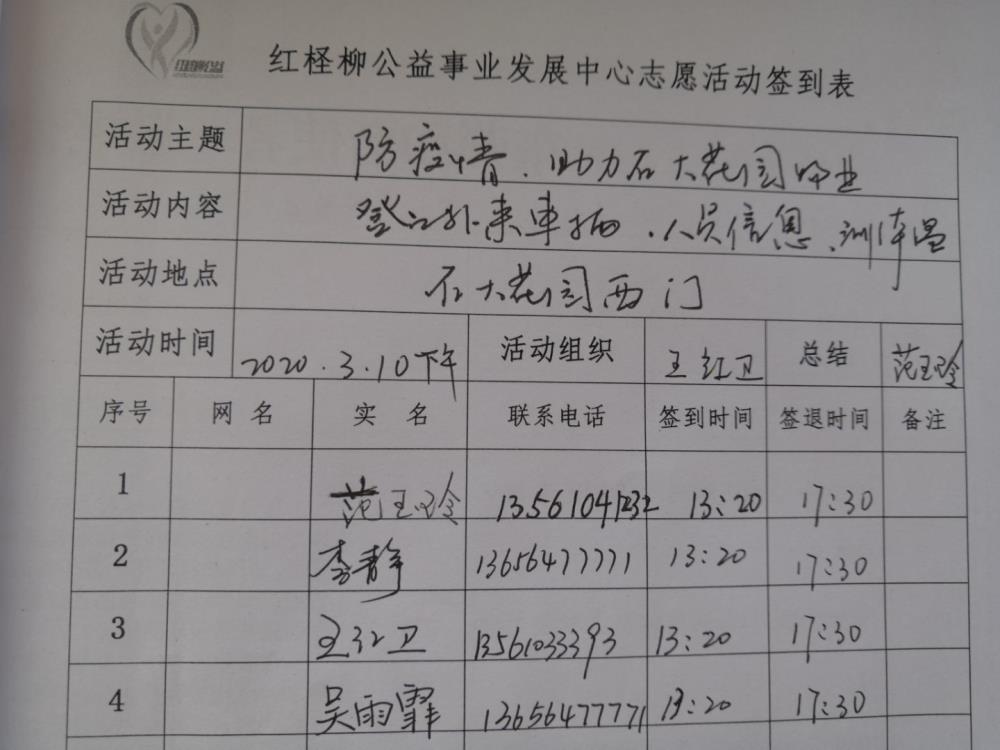 红柽柳公益
红柽柳公益事业发展中心志愿活动签到表
活动主题 防疫情、助力石大花园师业
活动内容 登记外来车辆、人员信息、测体温
活动地点 石大花园西门
活动时间 2020.3.10下午 活动组织 王红卫 总结 范玉玲
序号 网名 实名 联系电话 签到时间 签退时间 备注
1 范玉玲 13561041232 13:20 17:30
2 李静 13656477771 13:20 17:30
3 王红卫 13561033393 13:20 17:30
4 吴雨霏 13656477771 13:20 17:30